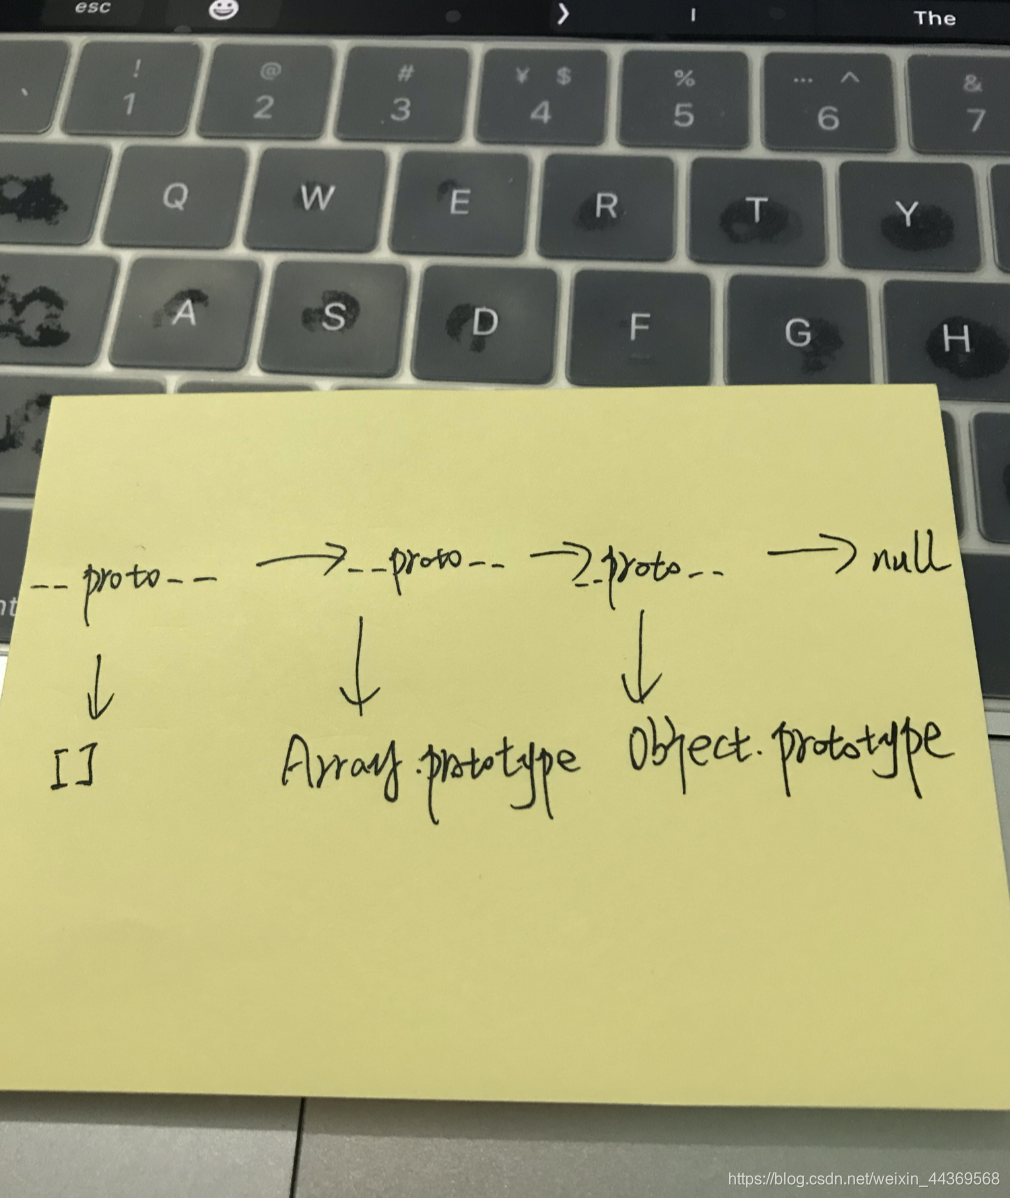 esc 😀 The
! @ # ¥ $ % … ^ &
` 1 2 3 4 5 6 7
Q W E R T Y
A S D F G H
-- proto -- → -- proto -- → -- proto -- → null
↓ ↓ ↓
[] Array.prototype Object.prototype
https://blog.csdn.net/weixin_44369568